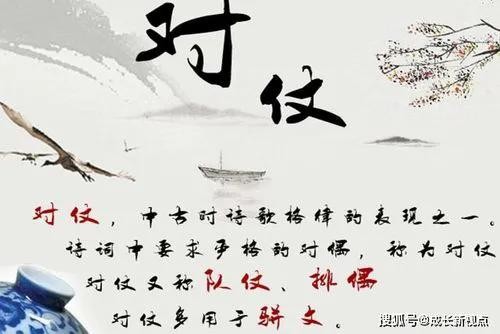 对仗
对仗，中古时诗歌格律的表现之一。
诗词中要求严格的对偶，称为对仗
对仗又称队仗、排偶
对仗多用于骈文。
搜狐号@成长新视点